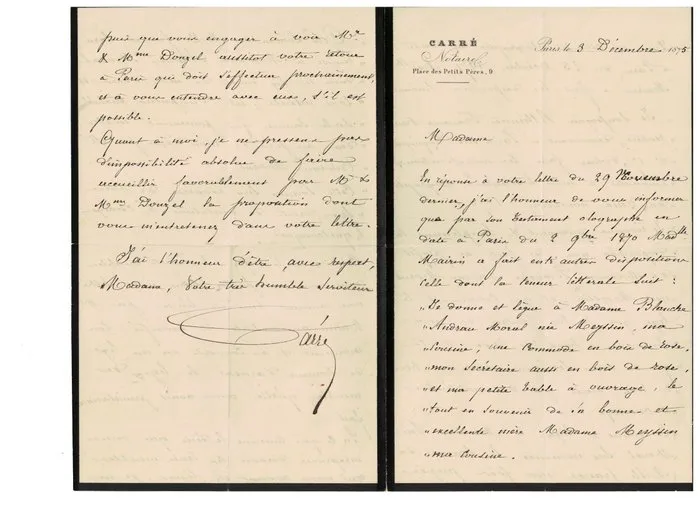 CARRÉ
Notaire
Place des Petits Pères, 9
Paris le 3 Décembre 1875
Madame
En réponse à votre lettre du 29 Novembre
dernier, j'ai l'honneur de vous informer
que par son testament olographe en
date à Paris du 2 9bre 1870 Madlle
Mairin a fait entr'autres dispositions
celle dont la teneur littérale suit :
"Je donne et lègue à Madame Blanche
"Andrau Moral née Meyssin, ma
"Cousine, une commode en bois de rose,
"mon secrétaire aussi en bois de rose,
"et ma petite table à ouvrage, le
"tout en souvenir de sa bonne et
"excellente mère Madame Meyssin
"ma Cousine.
puis que vous engager à voir Mr
& Mme Douzel aussitot votre retour
à Paris qui doit s'effectuer prochainement,
et à vous entendre avec eux, s'il est
possible.
Quant à moi, je ne pressens pas
d'impossibilité absolue de faire
accueillir favorablement par Mr &
Mme Douzel la proposition dont
vous m'entretenez dans votre lettre.
J'ai l'honneur d'être, avec respect,
Madame, Votre très humble serviteur
Carré